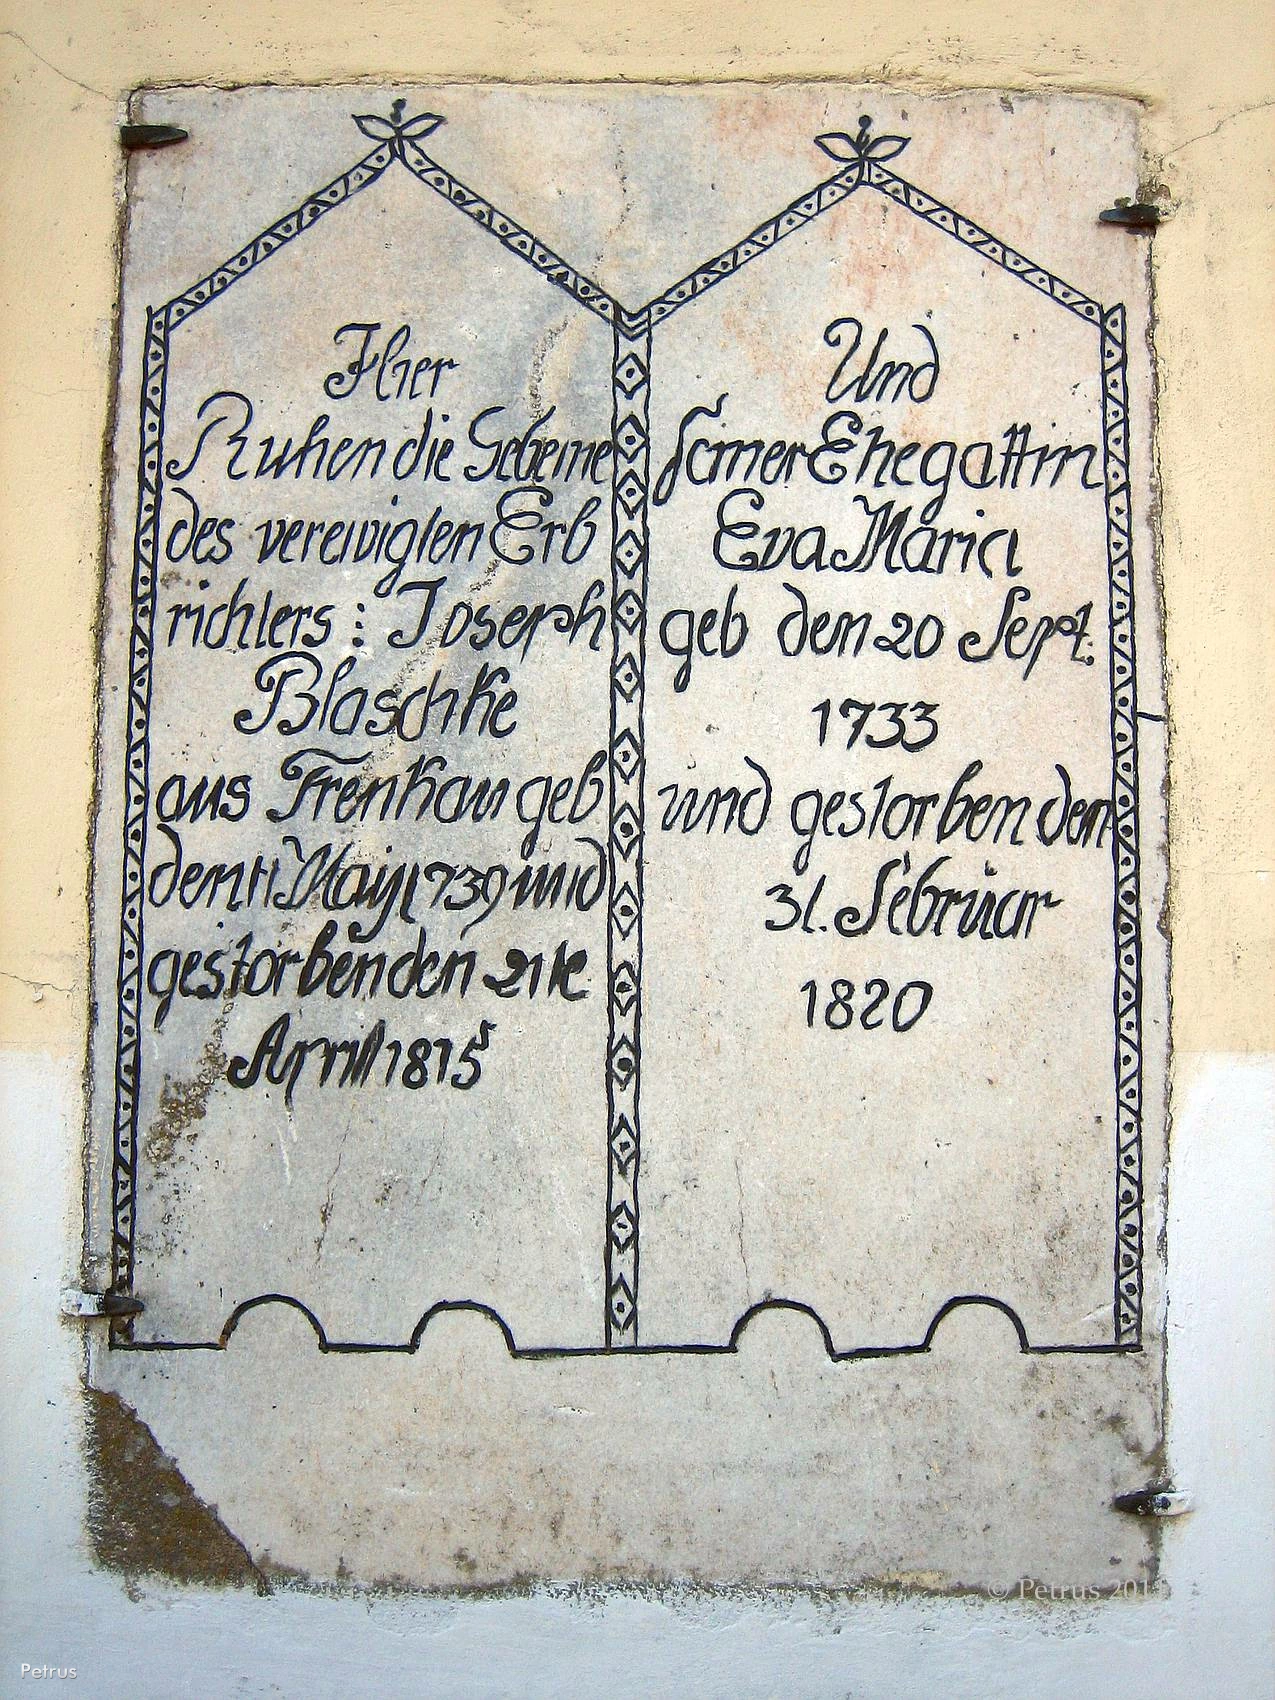 Hier
Ruhen die Gebeine
des verewigten Erb
richters : Joseph
Blaschke
aus Frenkau geb
den 11 Maij 1739 und
gestorben den 21te
Aprill 1815
Und
seiner Ehegattin
Eva Maria
geb den 20 Sept.
1733
und gestorben den
31. Februar
1820
© Petrus
Petrus